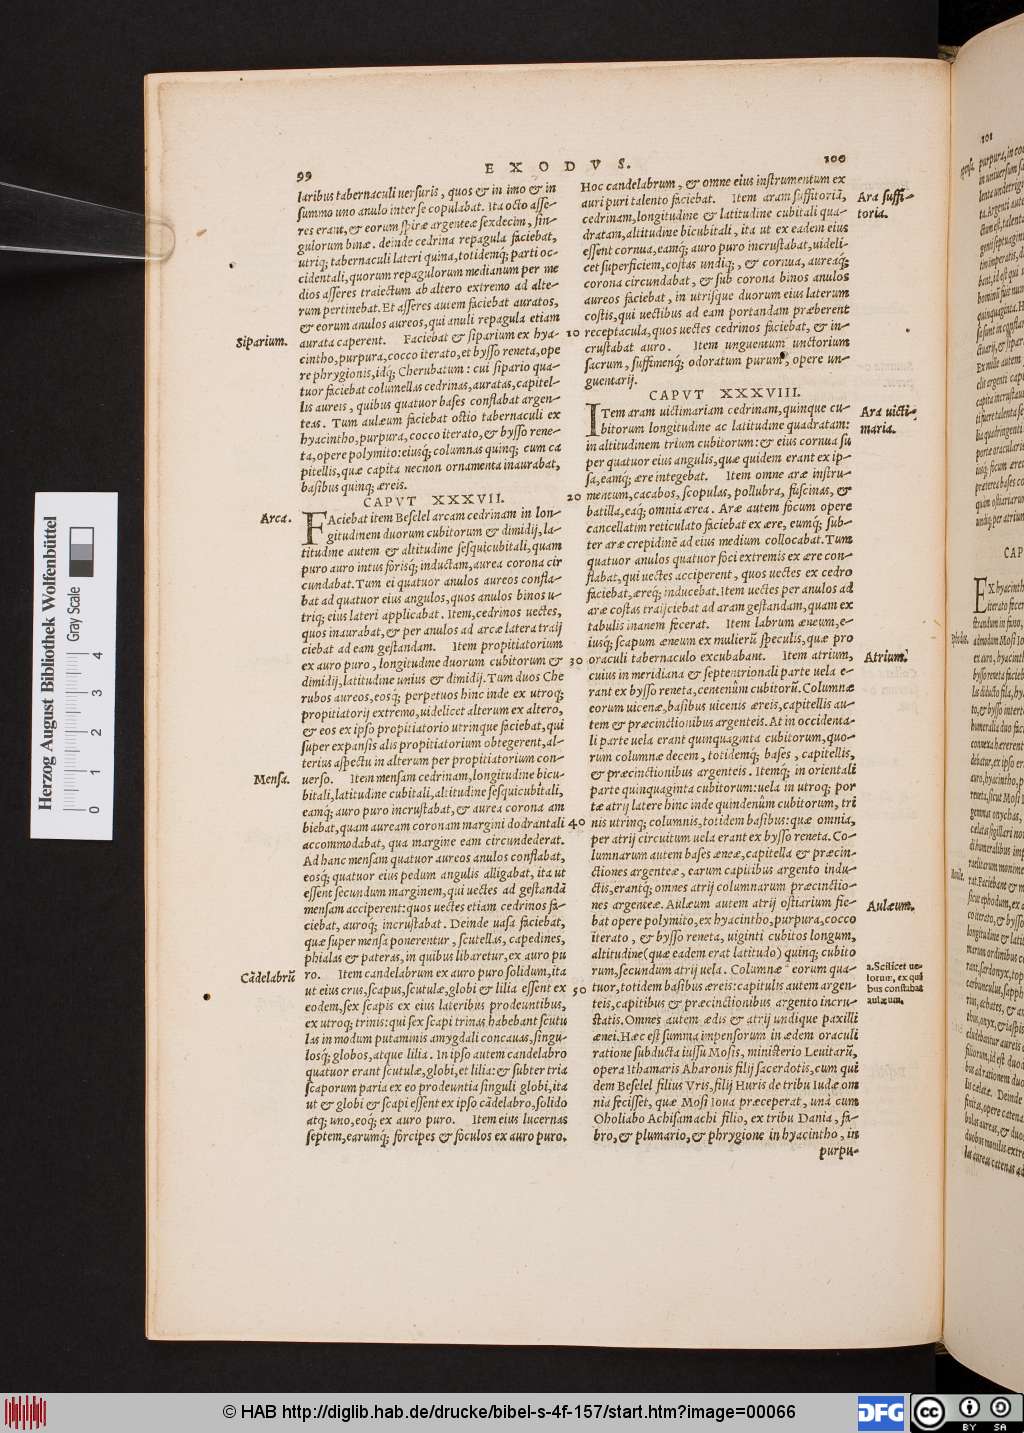 99
E X O D V S.
100
laribus tabernaculi uersuris, quos & in imo & in
summo uno anulo inter se copulabat. Ita octo asse-
res erant, & eorum spiræ argenteæ sexdecim, sin-
gulorum binæ. deinde cedrina repagula faciebat,
utriq; tabernaculi lateri quina, totidemq; parti oc-
cidentali, quorum repagulorum medianum per me
dios asseres traiectum ab altero extremo ad alte-
rum pertinebat. Et asseres autem faciebat auratos,
& eorum anulos aureos, qui anuli repagula etiam
Siparium.
aurata caperent. Faciebat & siparium ex hya-
cintho, purpura, cocco iterato, et bysso reneta, ope
re phrygionis, idq; Cherubatum: cui sipario qua-
tuor faciebat columellas cedrinas, auratas, capitel-
lis aureis, quibus quatuor bases conflabat argen-
teas. Tum aulæum faciebat ostio tabernaculi ex
hyacintho, purpura, cocco iterato, & bysso rene-
ta, opere polymito: eiusq; columnas quinq; cum ca
pitellis, quæ capita necnon ornamenta inaurabat,
basibus quinq; æreis.
CAPVT XXXVII.
Arca.
FAciebat item Beselel arcam cedrinam in lon-
gitudinem duorum cubitorum & dimidij, la-
titudine autem & altitudine sesquicubitali, quam
puro auro intus forisq; inductam, aurea corona cir
cundabat. Tum ei quatuor anulos aureos confla-
bat ad quatuor eius angulos, quos anulos binos u-
triq; eius lateri applicabat. Item, cedrinos uectes,
quos inaurabat, & per anulos ad arcæ latera traij
ciebat ad eam gestandam. Item propitiatorium
ex auro puro, longitudine duorum cubitorum &
dimidij, latitudine unius & dimidij. Tum duos Che
rubos aureos, eosq; perpetuos hinc inde ex utroq;
propitiatorij extremo, uidelicet alterum ex altero,
& eos ex ipso propitiatorio utrinque faciebat, qui
super expansis alis propitiatorium obtegerent, al-
terius aspectu in alterum per propitiatorium con-
Mensa.
uerso. Item mensam cedrinam, longitudine bicu-
bitali, latitudine cubitali, altitudine sesquicubitali,
eamq; auro puro incrustabat, & aurea corona am
biebat, quam auream coronam margini dodrantali
accommodabat, qua margine eam circundederat.
Ad hanc mensam quatuor aureos anulos conflabat,
eosq; quatuor eius pedum angulis alligabat, ita ut
essent secundum marginem, qui uectes ad gestandā
mensam acciperent: quos uectes etiam cedrinos fa-
ciebat, auroq; incrustabat. Deinde uasa faciebat,
quæ super mensa ponerentur, scutellas, capedines,
phialas & pateras, in quibus libaretur, ex auro pu
Cādelabrū
ro. Item candelabrum ex auro puro solidum, ita
ut eius crus, scapus, scutulæ, globi & lilia essent ex
eodem, sex scapis ex eius lateribus prodeuntibus,
ex utroq; trinis: qui sex scapi trinas habebant scutu
las in modum putaminis amygdali concauas, singu-
losq; globos, atque lilia. In ipso autem candelabro
quatuor erant scutulæ, globi, et lilia: & subter tria
scaporum paria ex eo prodeuntia singuli globi, ita
ut & globi & scapi essent ex ipso cādelabro, solido
atq; uno, eoq; ex auro puro. Item eius lucernas
septem, earumq; forcipes & foculos ex auro puro.
10
20
30
40
50
Hoc candelabrum, & omne eius instrumentum ex
auri puri talento faciebat. Item aram suffitoriā,
Ara suffi-
toria.
cedrinam, longitudine & latitudine cubitali qua-
dratam, altitudine bicubitali, ita ut ex eadem eius
essent cornua, eamq; auro puro incrustabat, uideli-
cet superficiem, costas undiq;, & cornua, aureaq;
corona circundabat, & sub corona binos anulos
aureos faciebat, in utrisque duorum eius laterum
costis, qui uectibus ad eam portandam præberent
receptacula, quos uectes cedrinos faciebat, & in-
crustabat auro. Item unguentum unctorium
sacrum, suffimenq; odoratum purum, opere un-
guentarij.
CAPVT XXXVIII.
ITem aram uictimariam cedrinam, quinque cu-
Ara uicti-
maria.
bitorum longitudine ac latitudine quadratam:
in altitudinem trium cubitorum: & eius cornua su
per quatuor eius angulis, quæ quidem erant ex ip-
sa, eamq; ære integebat. Item omne aræ instru-
mentum, cacabos, scopulas, pollubra, fuscinas, &
batilla, eaq; omnia ærea. Aræ autem focum opere
cancellatim reticulato faciebat ex ære, eumq; sub-
ter aræ crepidine ad eius medium collocabat. Tum
quatuor anulos quatuor foci extremis ex ære con-
flabat, qui uectes acciperent, quos uectes ex cedro
faciebat, æreq; inducebat. Item uectes per anulos ad
aræ costas traijciebat ad aram gestandam, quam ex
tabulis inanem fecerat. Item labrum æneum, e-
iusq; scapum æneum ex mulierū speculis, quæ pro
oraculi tabernaculo excubabant. Item atrium,
Atrium.
cuius in meridiana & septentrionali parte uela e-
rant ex bysso reneta, centenûm cubitorū. Columnæ
eorum uicenæ, basibus uicenis æreis, capitellis au-
tem & præcinctionibus argenteis. At in occidenta-
li parte uela erant quinquaginta cubitorum, quo-
rum columnæ decem, totidemq; bases, capitellis,
& præcinctionibus argenteis. Itemq; in orientali
parte quinquaginta cubitorum: uela in utroq; por
tæ atrij latere hinc inde quindenûm cubitorum, tri
nis utrinq; columnis, totidem basibus: quæ omnia,
per atrij circuitum uela erant ex bysso reneta. Co-
lumnarum autem bases æneæ, capitella & præcin-
ctiones argenteæ, earum capitibus argento indu-
ctis, erantq; omnes atrij columnarum præcinctio-
nes argenteæ. Aulæum autem atrij ostiarium fie-
Aulæum.
bat opere polymito, ex hyacintho, purpura, cocco
iterato, & bysso reneta, uiginti cubitos longum,
altitudine (quæ eadem erat latitudo) quinq; cubito
rum, secundum atrij uela. Columnæ eorum qua-
tuor, totidem basibus æreis: capitulis autem argen-
teis, capitibus & præcinctionibus argento incru-
statis. Omnes autem ædis & atrij undique paxilli
a. Scilicet ue-
lorum, ex qui
bus constabat
aulæum.
ænei. Hæc est summa impensorum in ædem oraculi
ratione subducta iussu Mosis, ministerio Leuitarū,
opera Ithamaris Aharonis filij sacerdotis, cum qui
dem Beselel filius Vris, filij Huris de tribu Iudæ om
nia fecisset, quæ Mosi Ioua præceperat, unà cum
Oholiabo Achisamachi filio, ex tribu Dania, fa-
bro, & plumario, & phrygione in hyacintho, in
purpu-
101
CAP
Herzog August Bibliothek Wolfenbüttel
Gray Scale
0 1 2 3 4
© HAB http://diglib.hab.de/drucke/bibel-s-4f-157/start.htm?image=00066
DFG
cc
BY SA